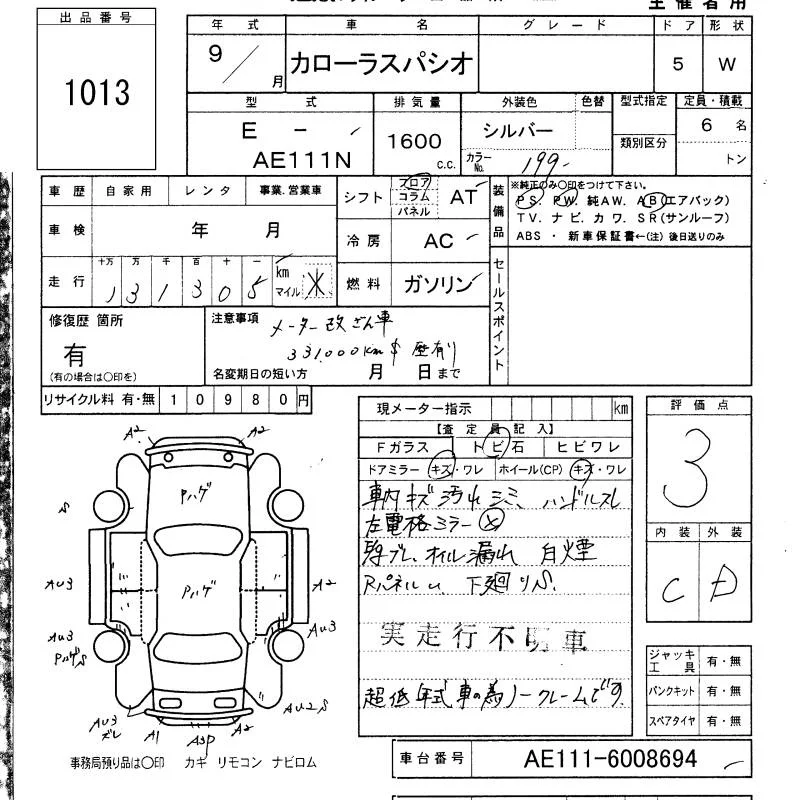 主催者用
出品番号
1013
年式 車名 グレード ドア 形状
9／月 カローラスパシオ 5 W
型式 排気量 外装色 色替 型式指定 定員・積載
E－ 1600 c.c. シルバー 類別区分 6名
AE111N カラーNo. 199- トン
車歴 自家用 レンタ 事業.営業車
車検 年 月
走行 十万 万 千 百 十 一
131305 km マイル ※
シフト フロア コラム パネル AT
冷房 AC
燃料 ガソリン
装備品
※純正のみ〇印をつけて下さい。
PS. PW. 純AW. AB(エアバック)
TV. ナビ. カワ. SR(サンルーフ)
ABS ・ 新車保証書←(注) 後日送りのみ
セールスポイント
修復歴 箇所
有
(有の場合は〇印を)
注意事項
メーター改ざん車
331,000km 歴有り
名変期日の短い方 月 日まで
リサイクル料 有・無 10980円
現メーター指示 km
【査定員記入】
Fガラス トビ石 ヒビワレ
ドアミラー キズ・ワレ ホイール(CP) キズ・ワレ
車内キズ汚れシミ、ハンドルスレ
左電格ミラー
オイル漏れ 白煙
Rパネルu 下廻りS.
実走行不明車
超低年式車の為ノークレームです.
評価点
3
内装 外装
C D
ジャッキ 工具 有・無
パンクキット 有・無
スペアタイヤ 有・無
A2 A2
Pハゲ
S
AU3 Pハゲ A2
AU3 AU3
PハゲS
AU3 ズレ A1 A3P A2 AU2S
事務局預り品は〇印 カギ リモコン ナビロム
車台番号 AE111-6008694